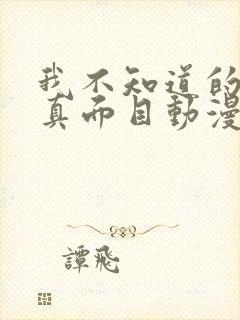 我不知道的
真而目動漫
譚飛